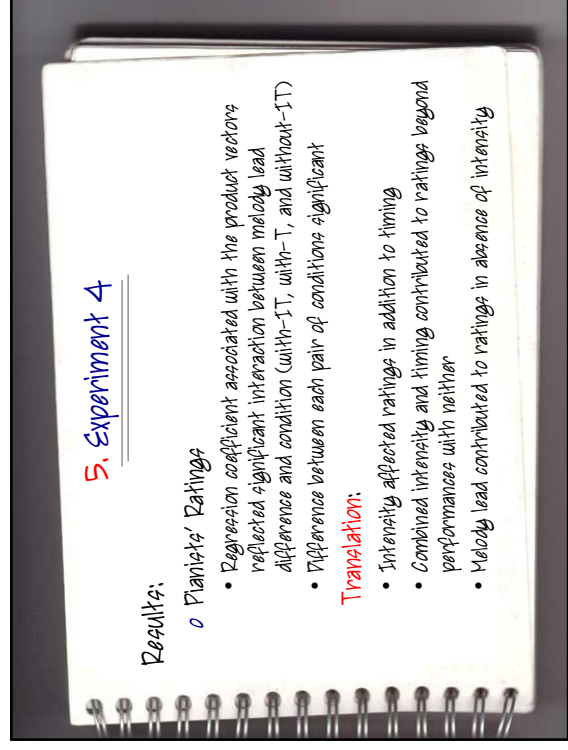 5. Experiment 4
Results:
o Pianists' Ratings
• Regression coefficient associated with the product vectors
reflected significant interaction between melody lead
difference and condition (with-IT, with-T, and without-IT)
• Difference between each pair of conditions significant
Translation:
• Intensity affected ratings in addition to timing
• Combined intensity and timing contributed to ratings beyond
performances with neither
• Melody lead contributed to ratings in absence of intensity